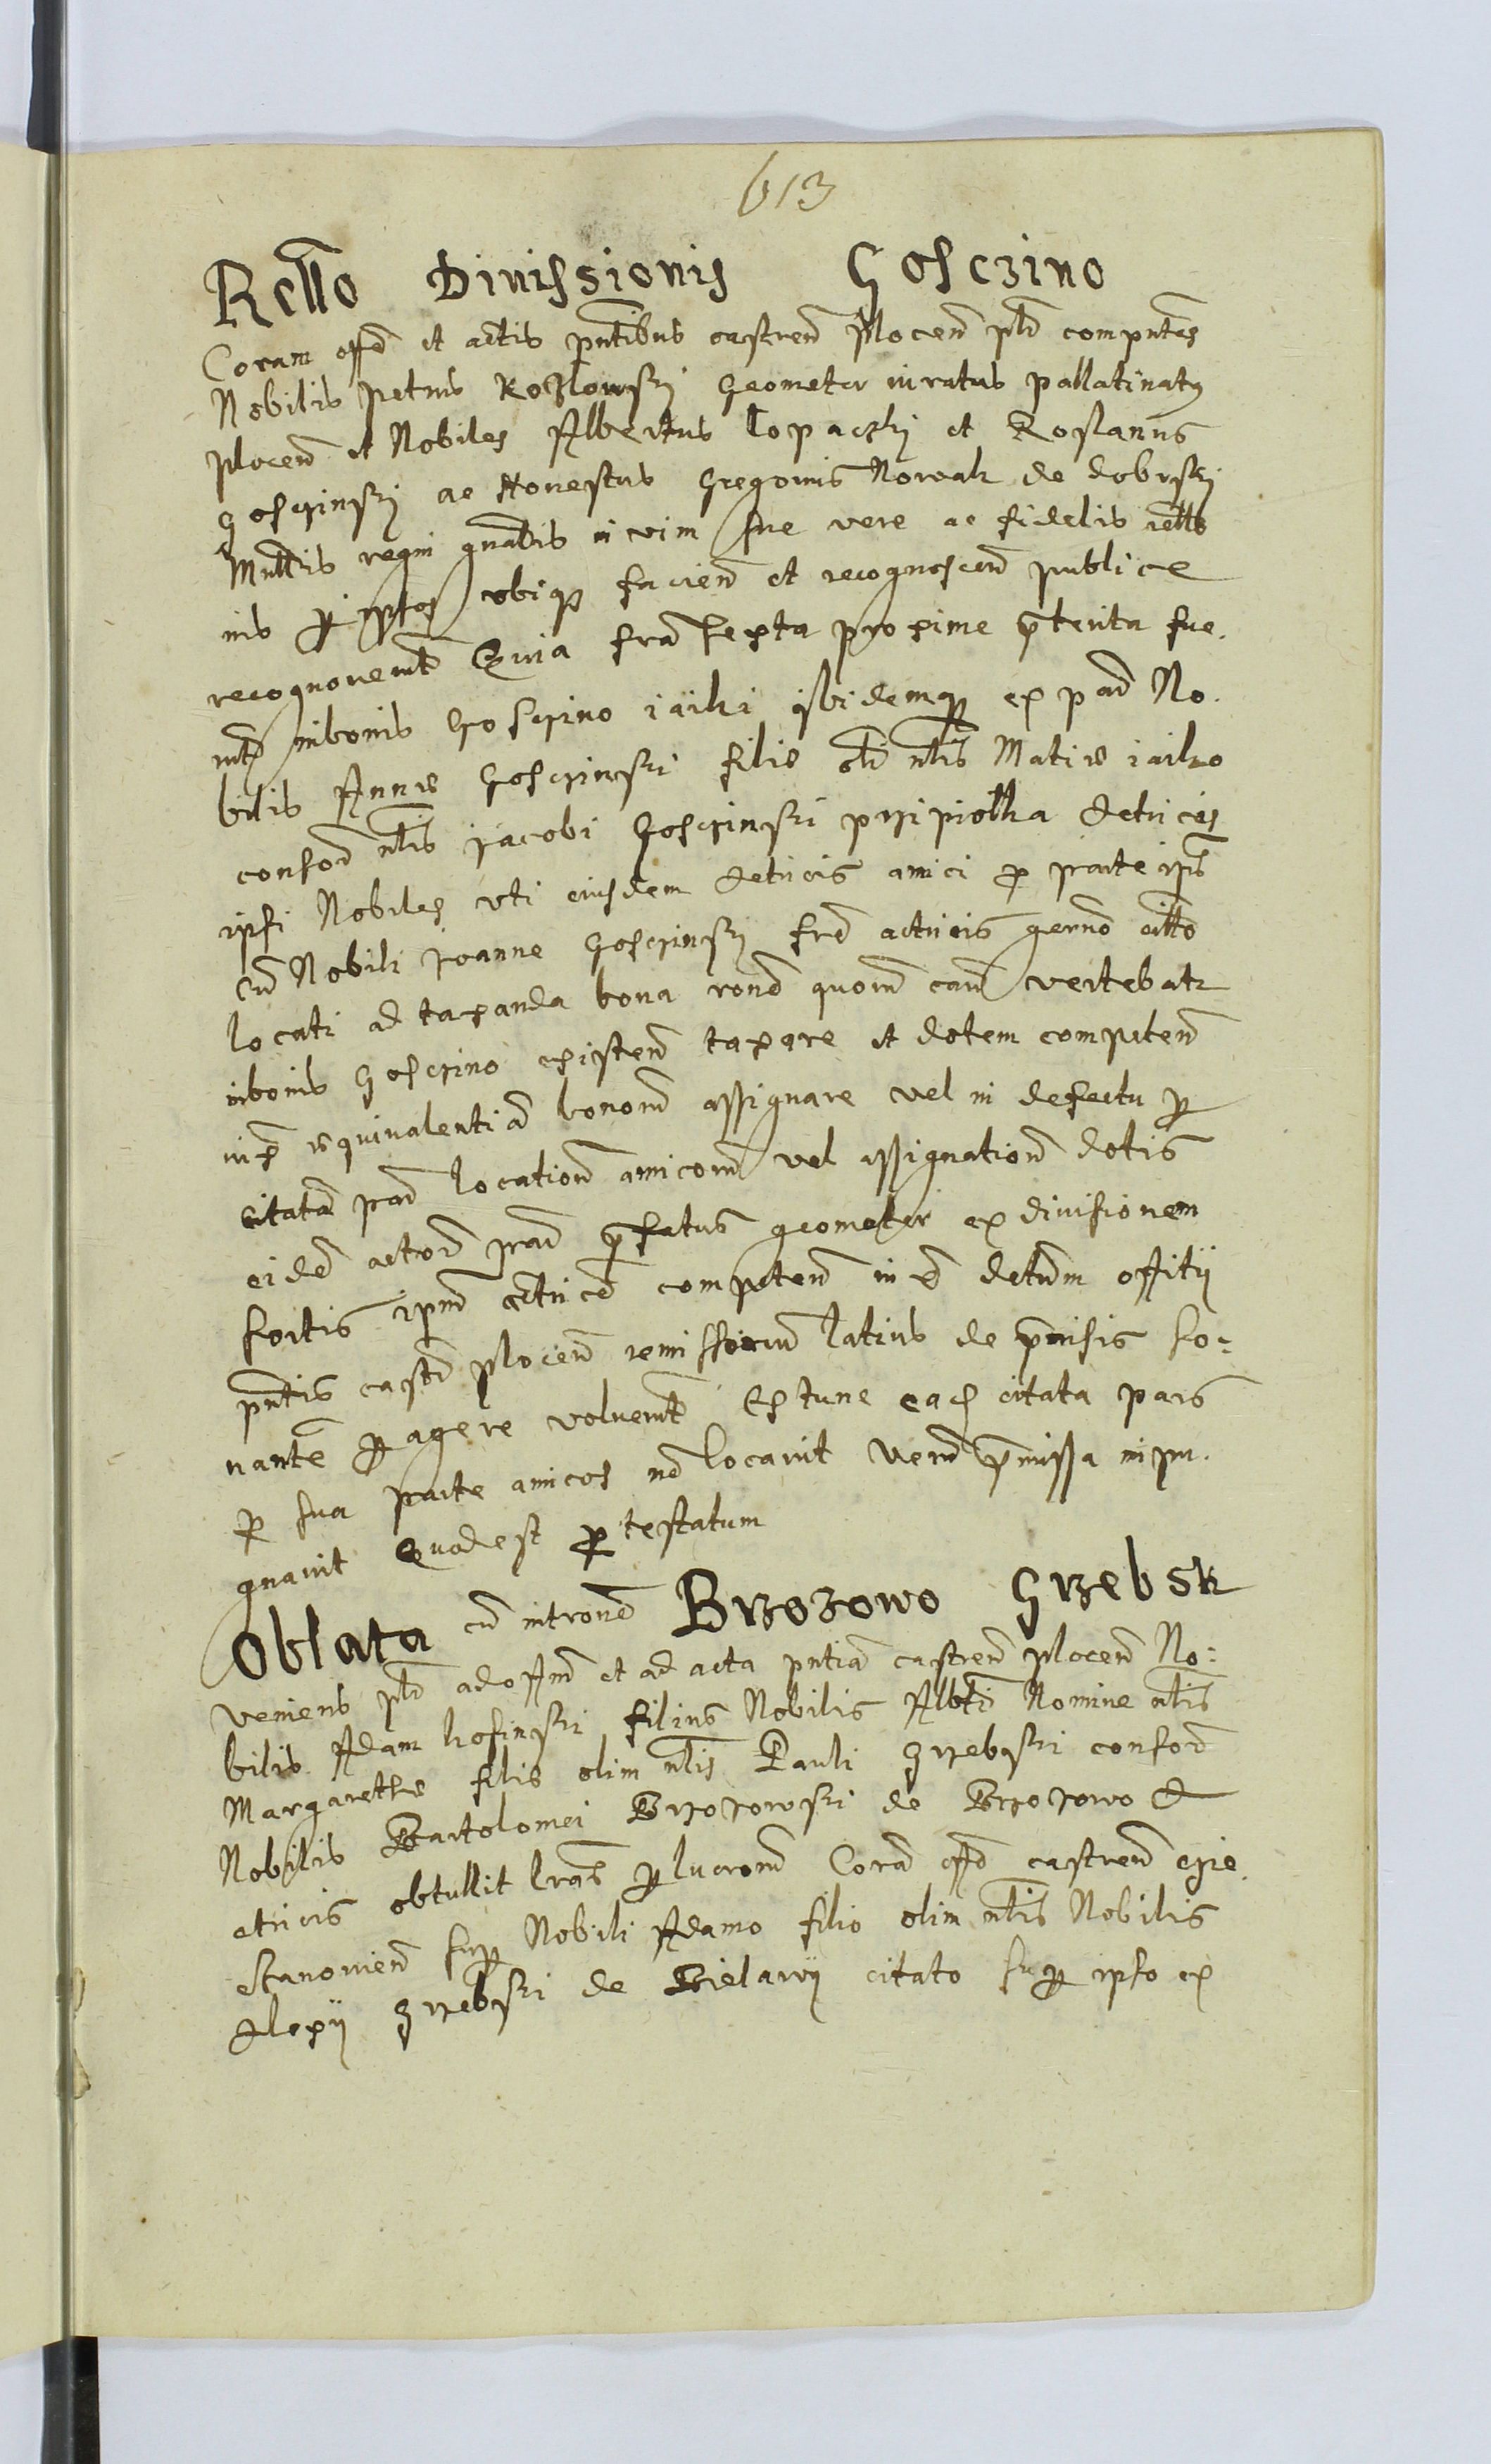 613
Rello Divissionis Gosczino
Coram offo et actis pntibus castren Plocen pld compntes
Nobilis Petrus Kozlowski Geometra iuratus pallatinatus
Plocen et Nobiles Albertus Lopaczki et Roslanus
Gosczinski ac Honestus Gregorius Nowak de Dobrski
Mnltris regni gnalis in vim sue vere ac fidelis rello
nis p ipsos ubiqz facien et recognoscen publice
recognoverunt Quia fra sexta proxime pterita fue.
runt in bonis Gosczino iaiki ibidemqz ex pad No.
bilis Anne Gosczinski filie oli nlis Matie iaiko
consor nlis Jacobi Gosczinski przipiolka actrices
ipsi Nobiles uti eiusdem actricis amici pro parte ips
cu Nobili Joanne Gosczinski fre actricis germo citto
locati ad taxanda bona rone quoru cau vertebatr
in bonis Gosczino existen taxare et dotem competen
iux equivalentia bonoru assignare vel in defectu p
citata par location amicoru vel assignation dotis
eide actori par pfatus geometra ex divisionem
sortis ipm actrice competen iux dctum offitii
pntis castr Plocen remissorum latius de pmisis so=
nante pagere voluerunt Ex tunc eads citata pars
p sua parte amicos no locavit veru pmissa impu.
gnavit Quod est ptestatum
Oblata cu introne Brzozowo Grzebsk
Veniens pld ad offm et ad acta pntia castren Plocen No=
bilis Adam kosinski filius Nobilis Alberti Nomine nlis
Margarethe filie olim nlis Pauli Grzebski consor
Nobilis Bartolomei Brzozowski de Brzozowo A
ctricis obtullit lras p lucrorum Cora offo castren cie
chanovien sup Nobili Adamo filio olim nlis Nobilis
Alexii Grzebski de Bielawy citato sup ipso ex